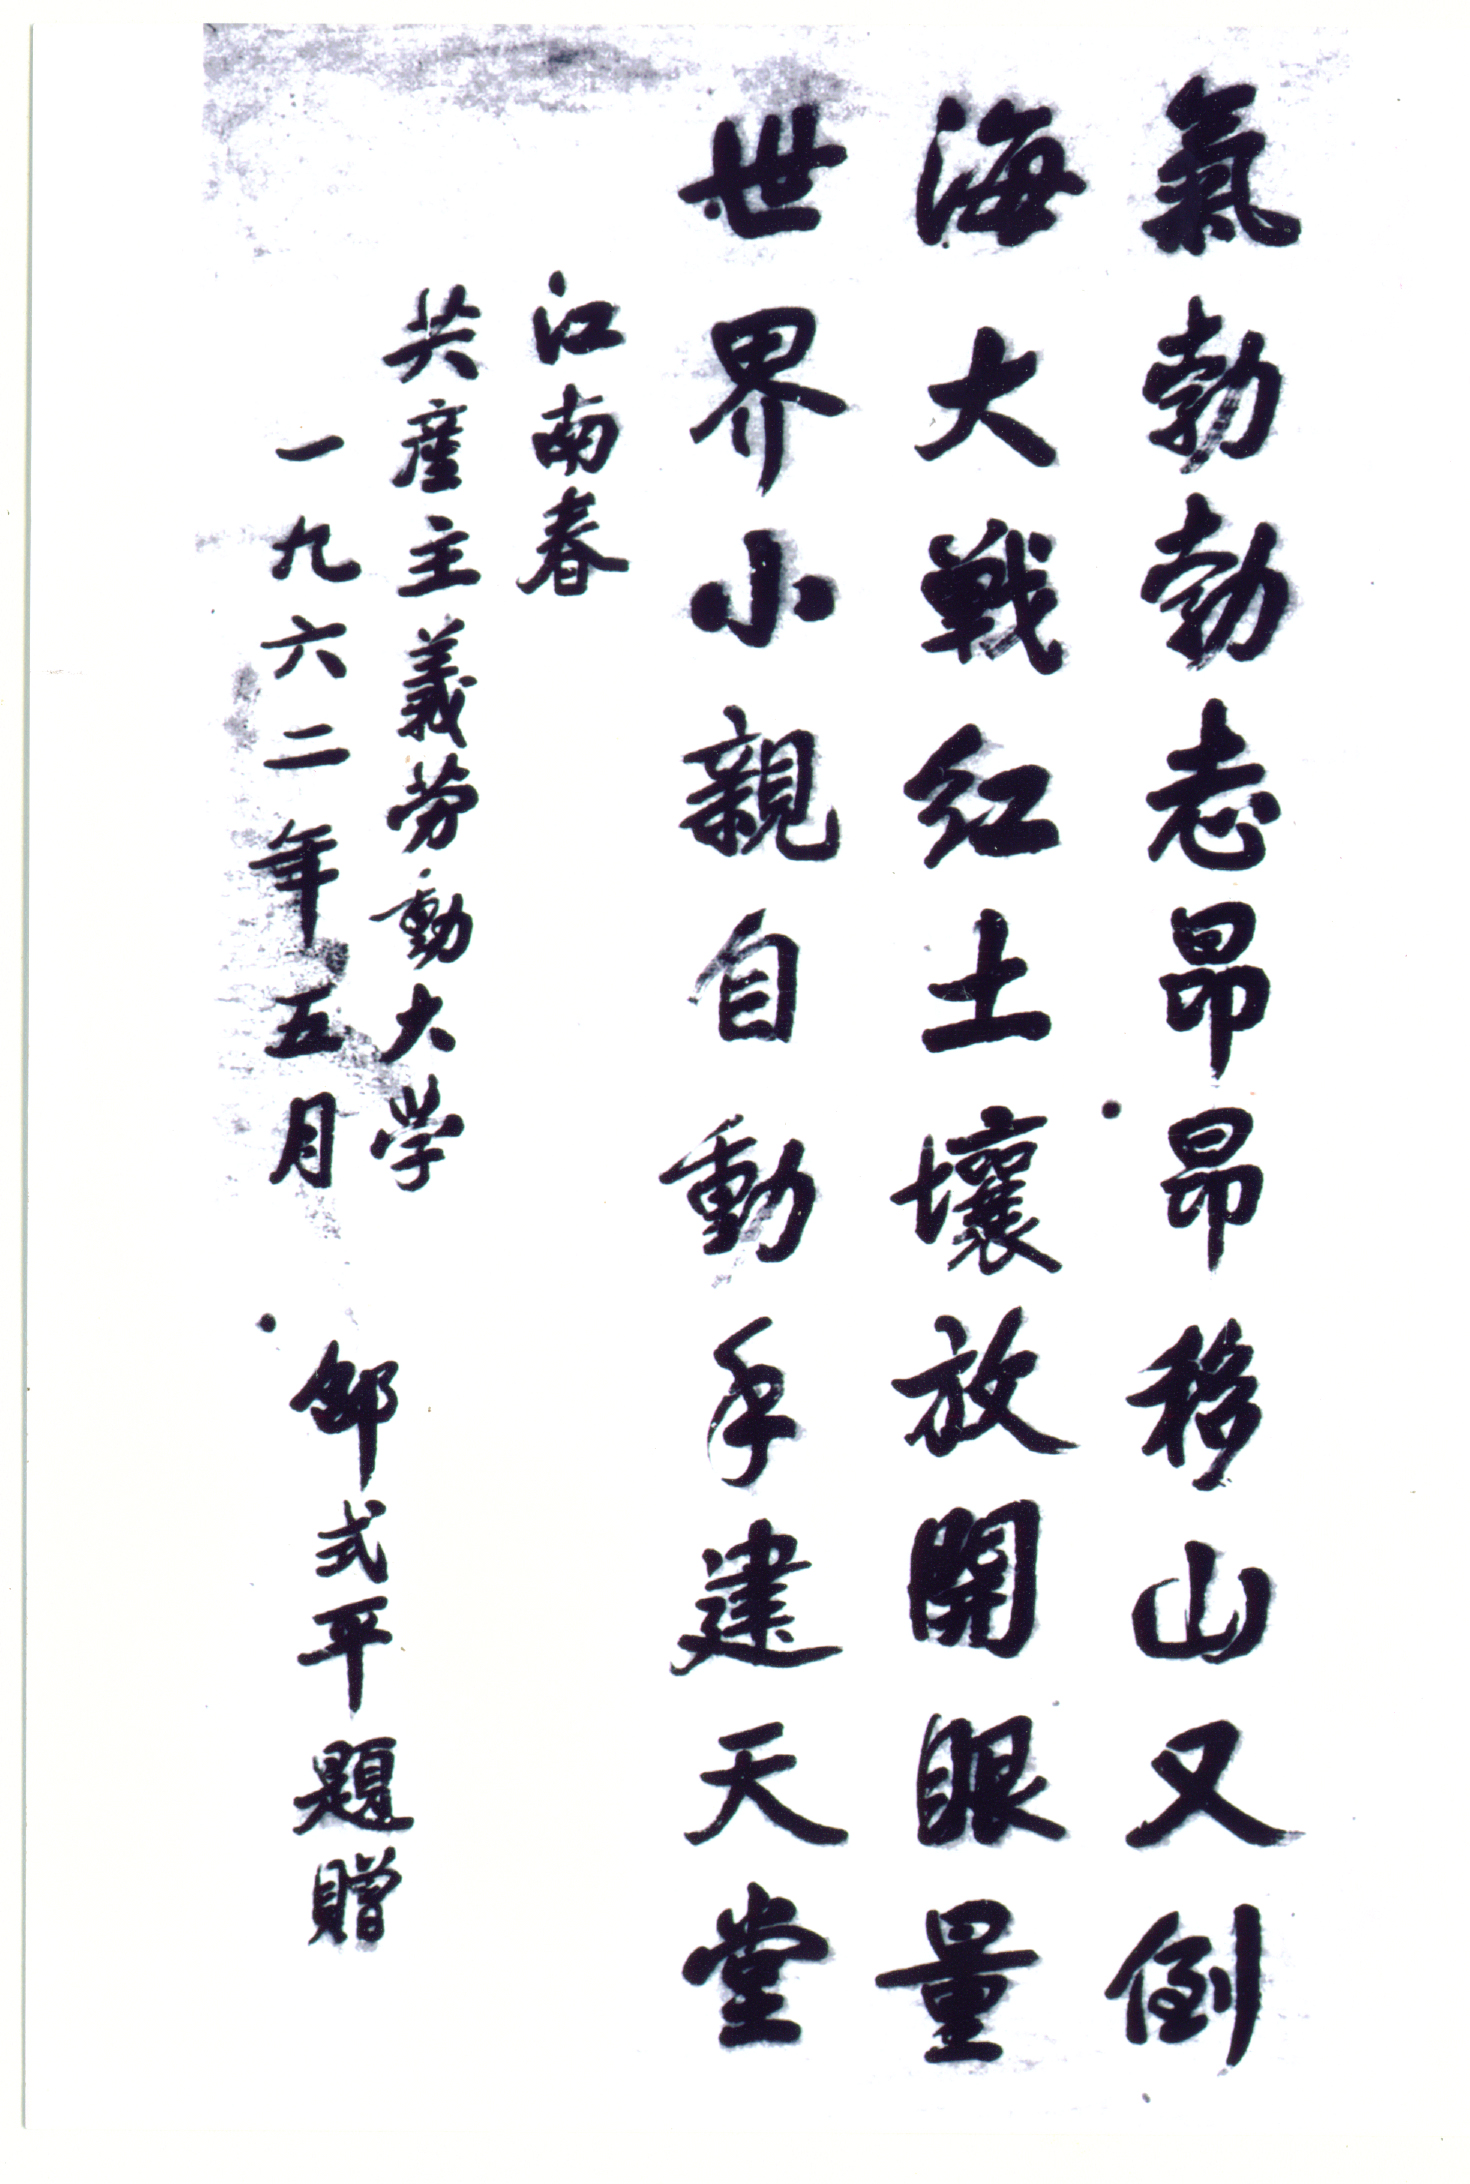 氣勃勃志昂昂移山又倒
海大戰红土壤放開眼量
世界小親自動手建天堂
江南春
共産主義劳動大学
一九六二年五月
邵式平題贈